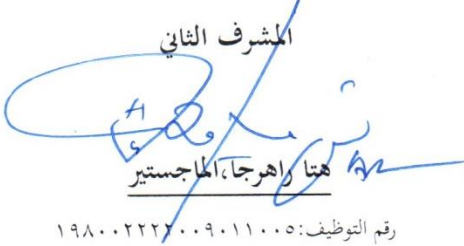 المشرف الثاني
هتا راهرجا،الماجستير
رقم التوظيف:١٩٨٠٠٢٢٢٢٠٠٩٠١١٠٠٥